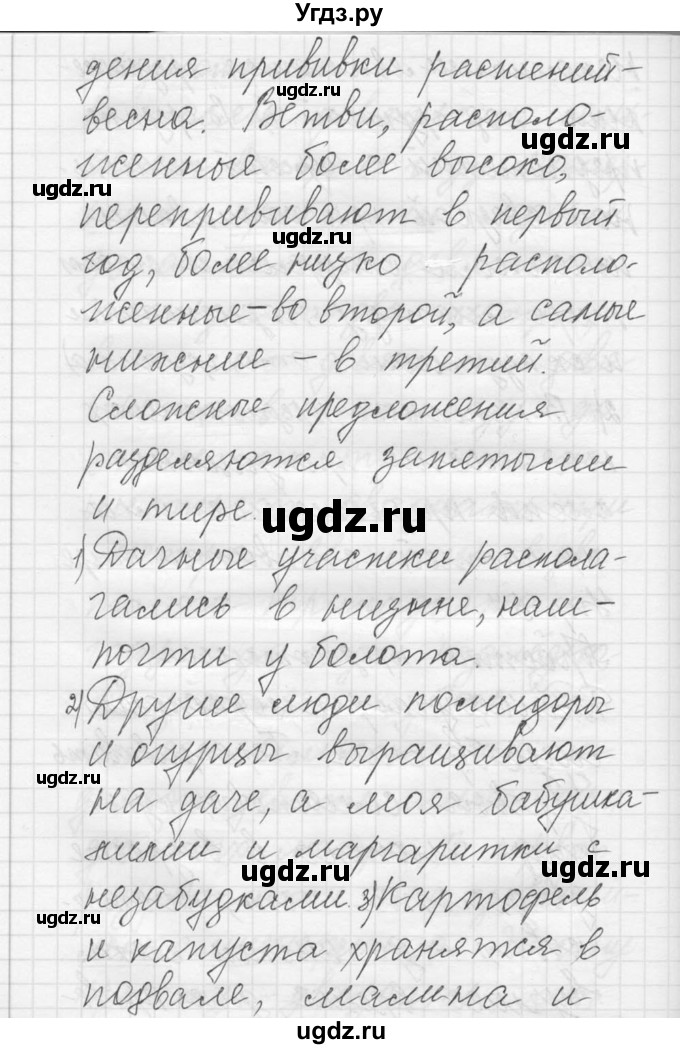 Угдз.ру
дения прививки растений-
весна. Ветви, располо-
женные более высоко,
перепрививают в первый
год, более низко располо-
женные - во второй, а самые
нижние - в третий.
Сложные предложения
разделяются запятыми
и тире.
1) Дачные участки распола-
гались в низине, наш -
почти у болота.
2) Другие люди помидоры
и огурцы выращивают
на даче, а моя бабушка -
лилии и маргаритки с
незабудками. 3) Картофель
и капуста хранятся в
подвале, малина и
ugdz.ru
ugdz.ru
ugdz.ru
ugdz.ru
ugdz.ru
ugdz.ru
ugdz.ru
ugdz.ru
ugdz.ru
ugdz.ru
ugdz.ru
ugdz.ru
ugdz.ru
ugdz.ru